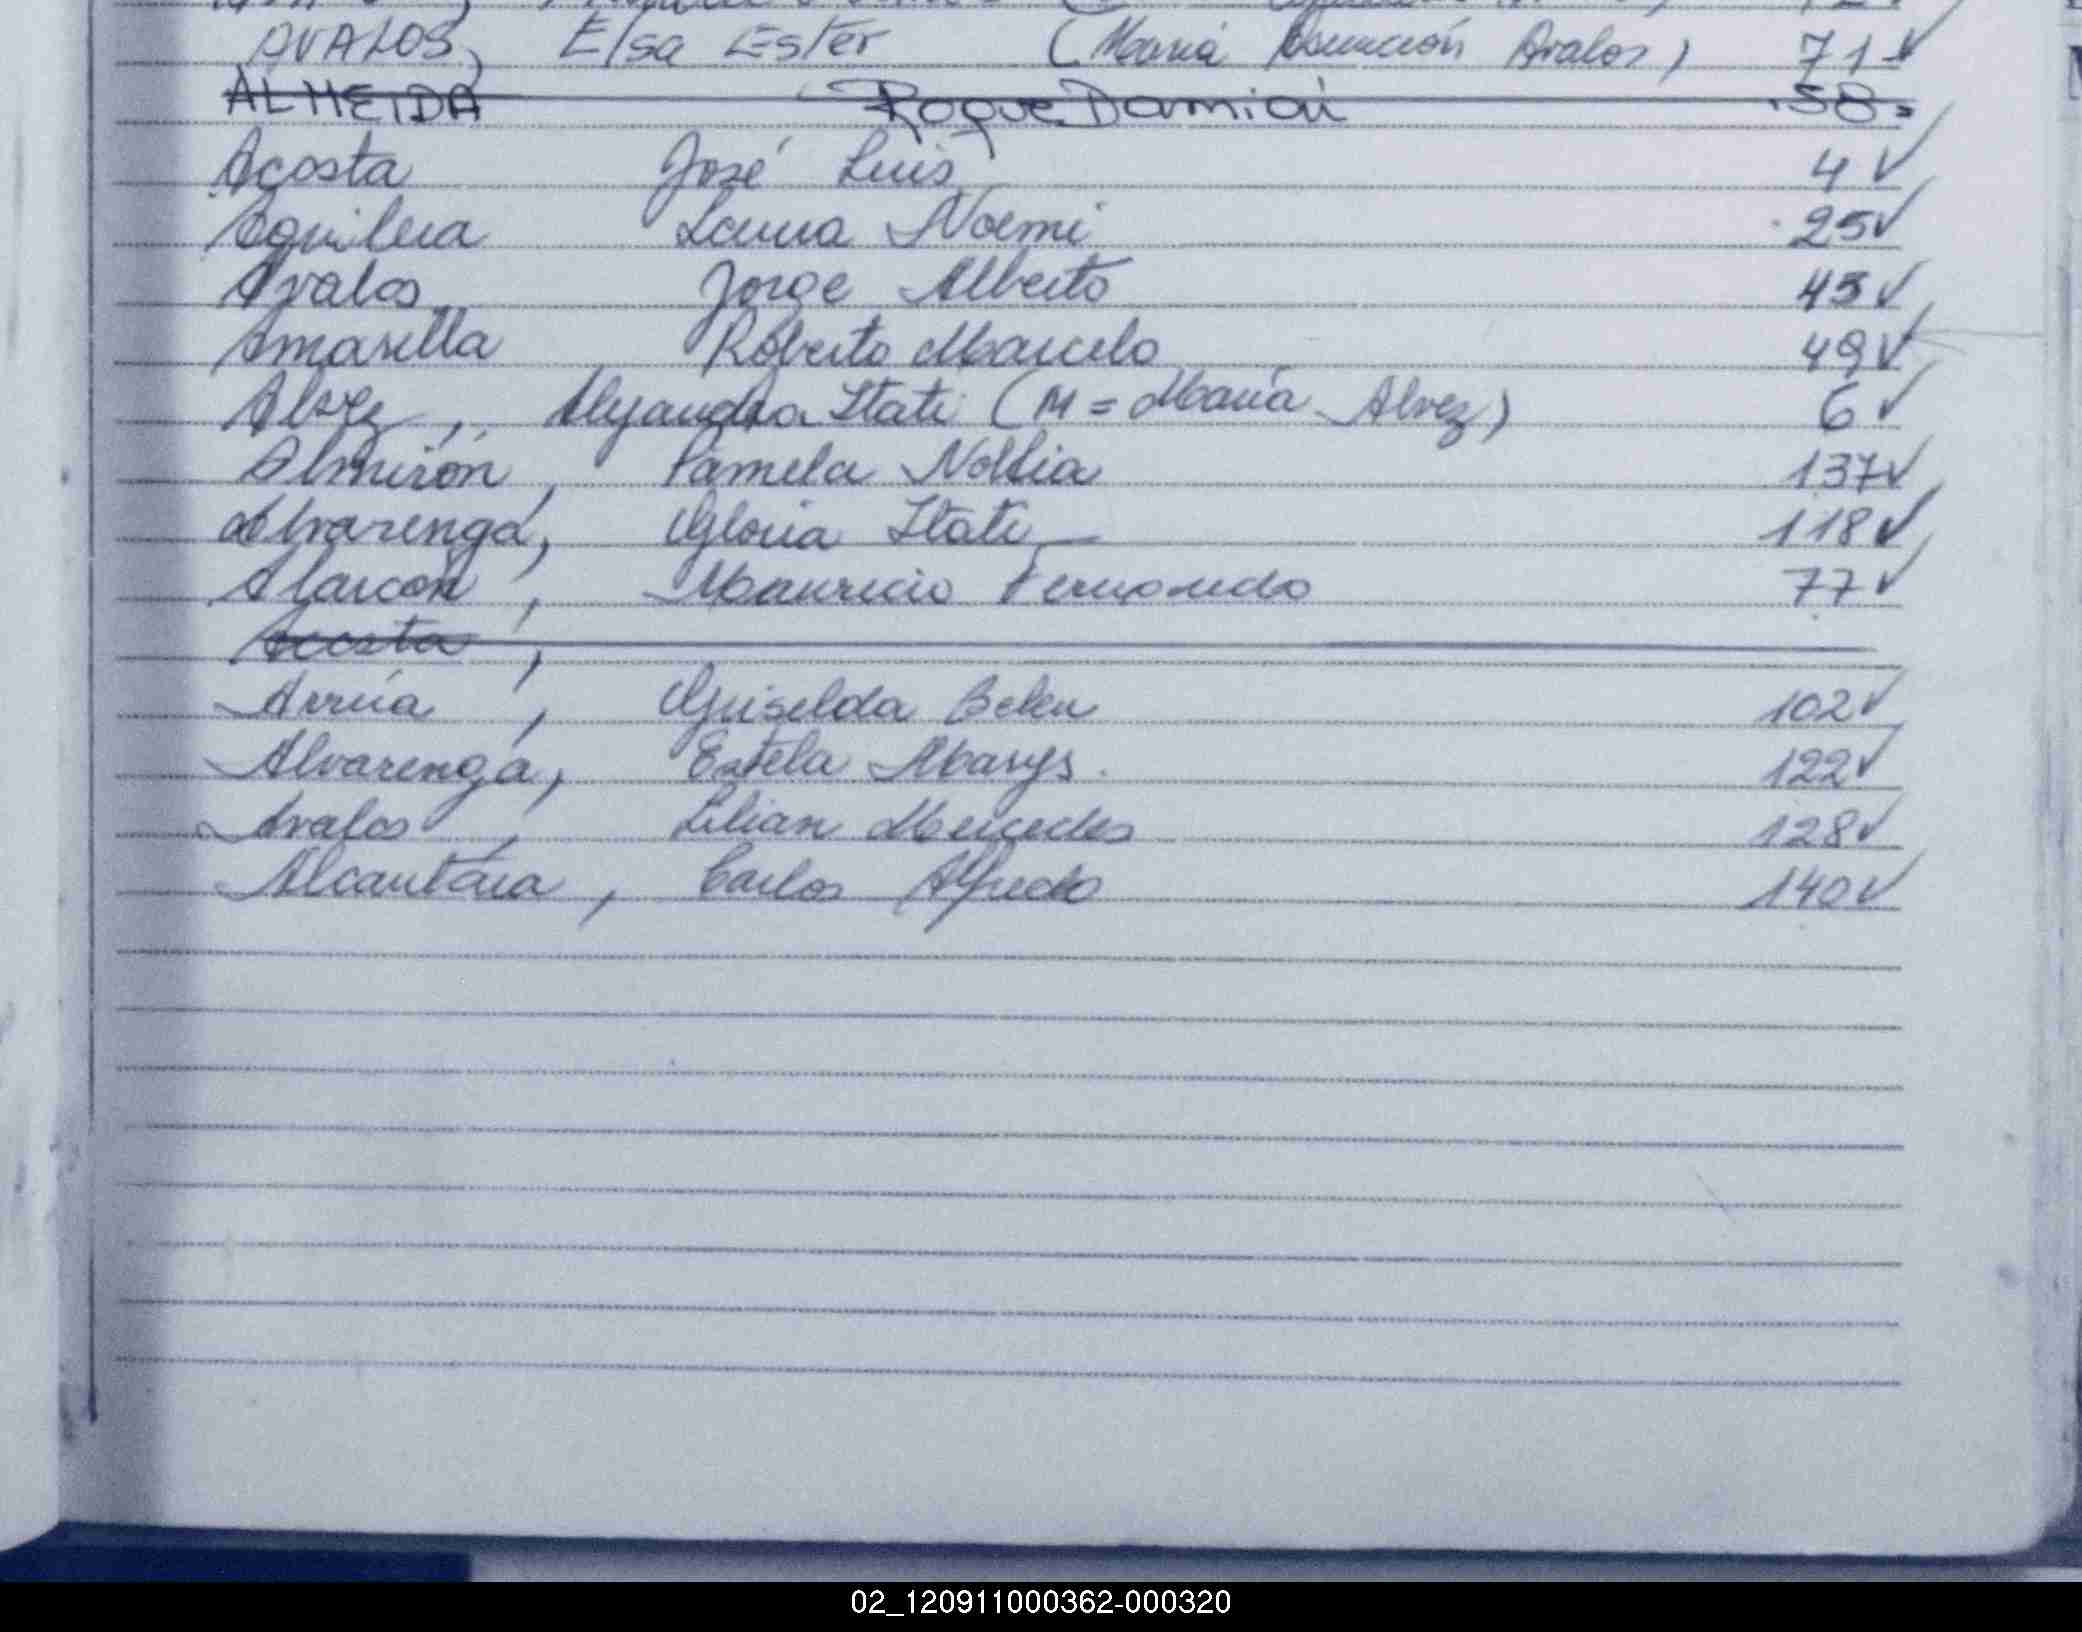 AVALOS, Elsa Ester (María Asunción Avalos) 71 ✓
ALMEIDA Roque Damián 58
Acosta José Luis 4 ✓
Aguilera Laura Noemi 25 ✓
Avalos Jorge Alberto 43 ✓
Amarilla Roberto Marcelo 49 ✓
Alvez, Alejandra Itati (M = María Alvez) 6 ✓
Almirón, Pamela Noelia 137 ✓
Alvarenga, Gloria Itati 118 ✓
Alarcón, Mauricio Fernando 77 ✓
Acosta,
Arrúa, Griselda Belen 102 ✓
Alvarenga, Estela Marys. 122 ✓
Avalos, Lilian Mercedes 128 ✓
Alcantara, Carlos Alfredo 140 ✓
02_120911000362-000320